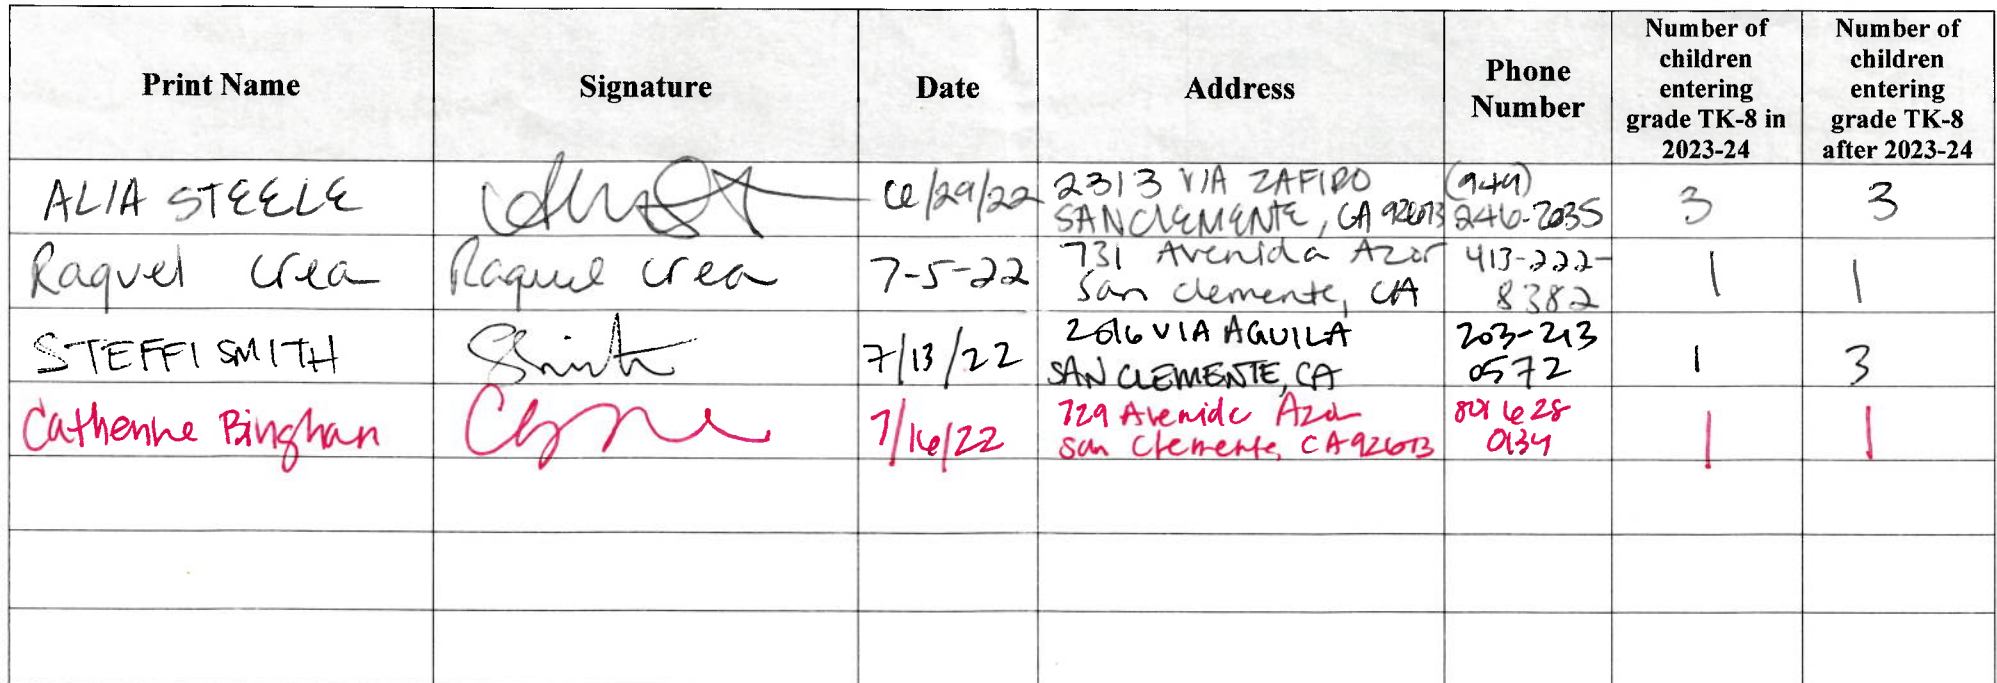 Print Name
Signature
Date
Address
Phone
Number
Number of
children
entering
grade TK-8 in
2023-24
Number of
children
entering
grade TK-8
after 2023-24
ALIA STEELE
6/29/22
2313 VIA ZAFIRO
SAN CLEMENTE, CA 92673
(949)
246-2035
3
3
Raquel Crea
Raquel Crea
7-5-22
731 Avenida Azor
San Clemente, CA
413-222-
8382
1
1
STEFFI SMITH
7/13/22
2016 VIA AGUILA
SAN CLEMENTE, CA
203-213
0572
1
3
Catherine Bingham
7/16/22
729 Avenida Azor
San Clemente, CA 92673
801 628
0134
1
1